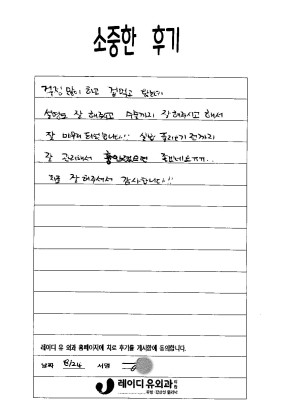 소중한 후기
걱정 많이 하고 겁먹고 왔는데
설명도 잘 해주시고 수술까지 잘 해주시고 해서
잘 마무리 되었습니다!! 실밥 풀리기 전까지
잘 관리해서 좋네요ㅠㅠ..
치료 잘 해주셔서 감사합니다!!
레이디 유 외과 홈페이지에 치료 후기를 게시함에 동의합니다.
날짜 8/24 서명
레이디유외과의원
유방·갑상선 클리닉